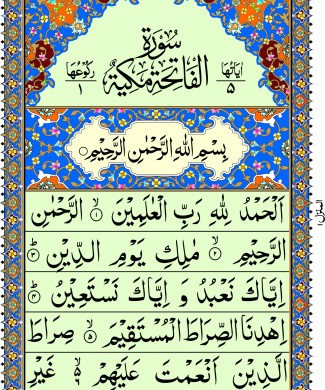 سُوْرَةُ
اٰيَاتُهَا ٥ الْفَاتِحَةِ مَكِّيَّةٌ رُكُوْعُهَا ١
بِسْمِ اللّٰهِ الرَّحْمٰنِ الرَّحِيْمِ
اَلْحَمْدُ لِلّٰهِ رَبِّ الْعٰلَمِيْنَ ۙ﴿١﴾ الرَّحْمٰنِ
الرَّحِيْمِ ۙ﴿٢﴾ مٰلِكِ يَوْمِ الدِّيْنِ ؕ﴿٣﴾
اِيَّاكَ نَعْبُدُ وَ اِيَّاكَ نَسْتَعِيْنُ ؕ﴿٤﴾
اِهْدِنَا الصِّرَاطَ الْمُسْتَقِيْمَ ۙ﴿٥﴾ صِرَاطَ
الَّذِيْنَ اَنْعَمْتَ عَلَيْهِمْ ۙ۬ غَيْرِ
المنزل ١